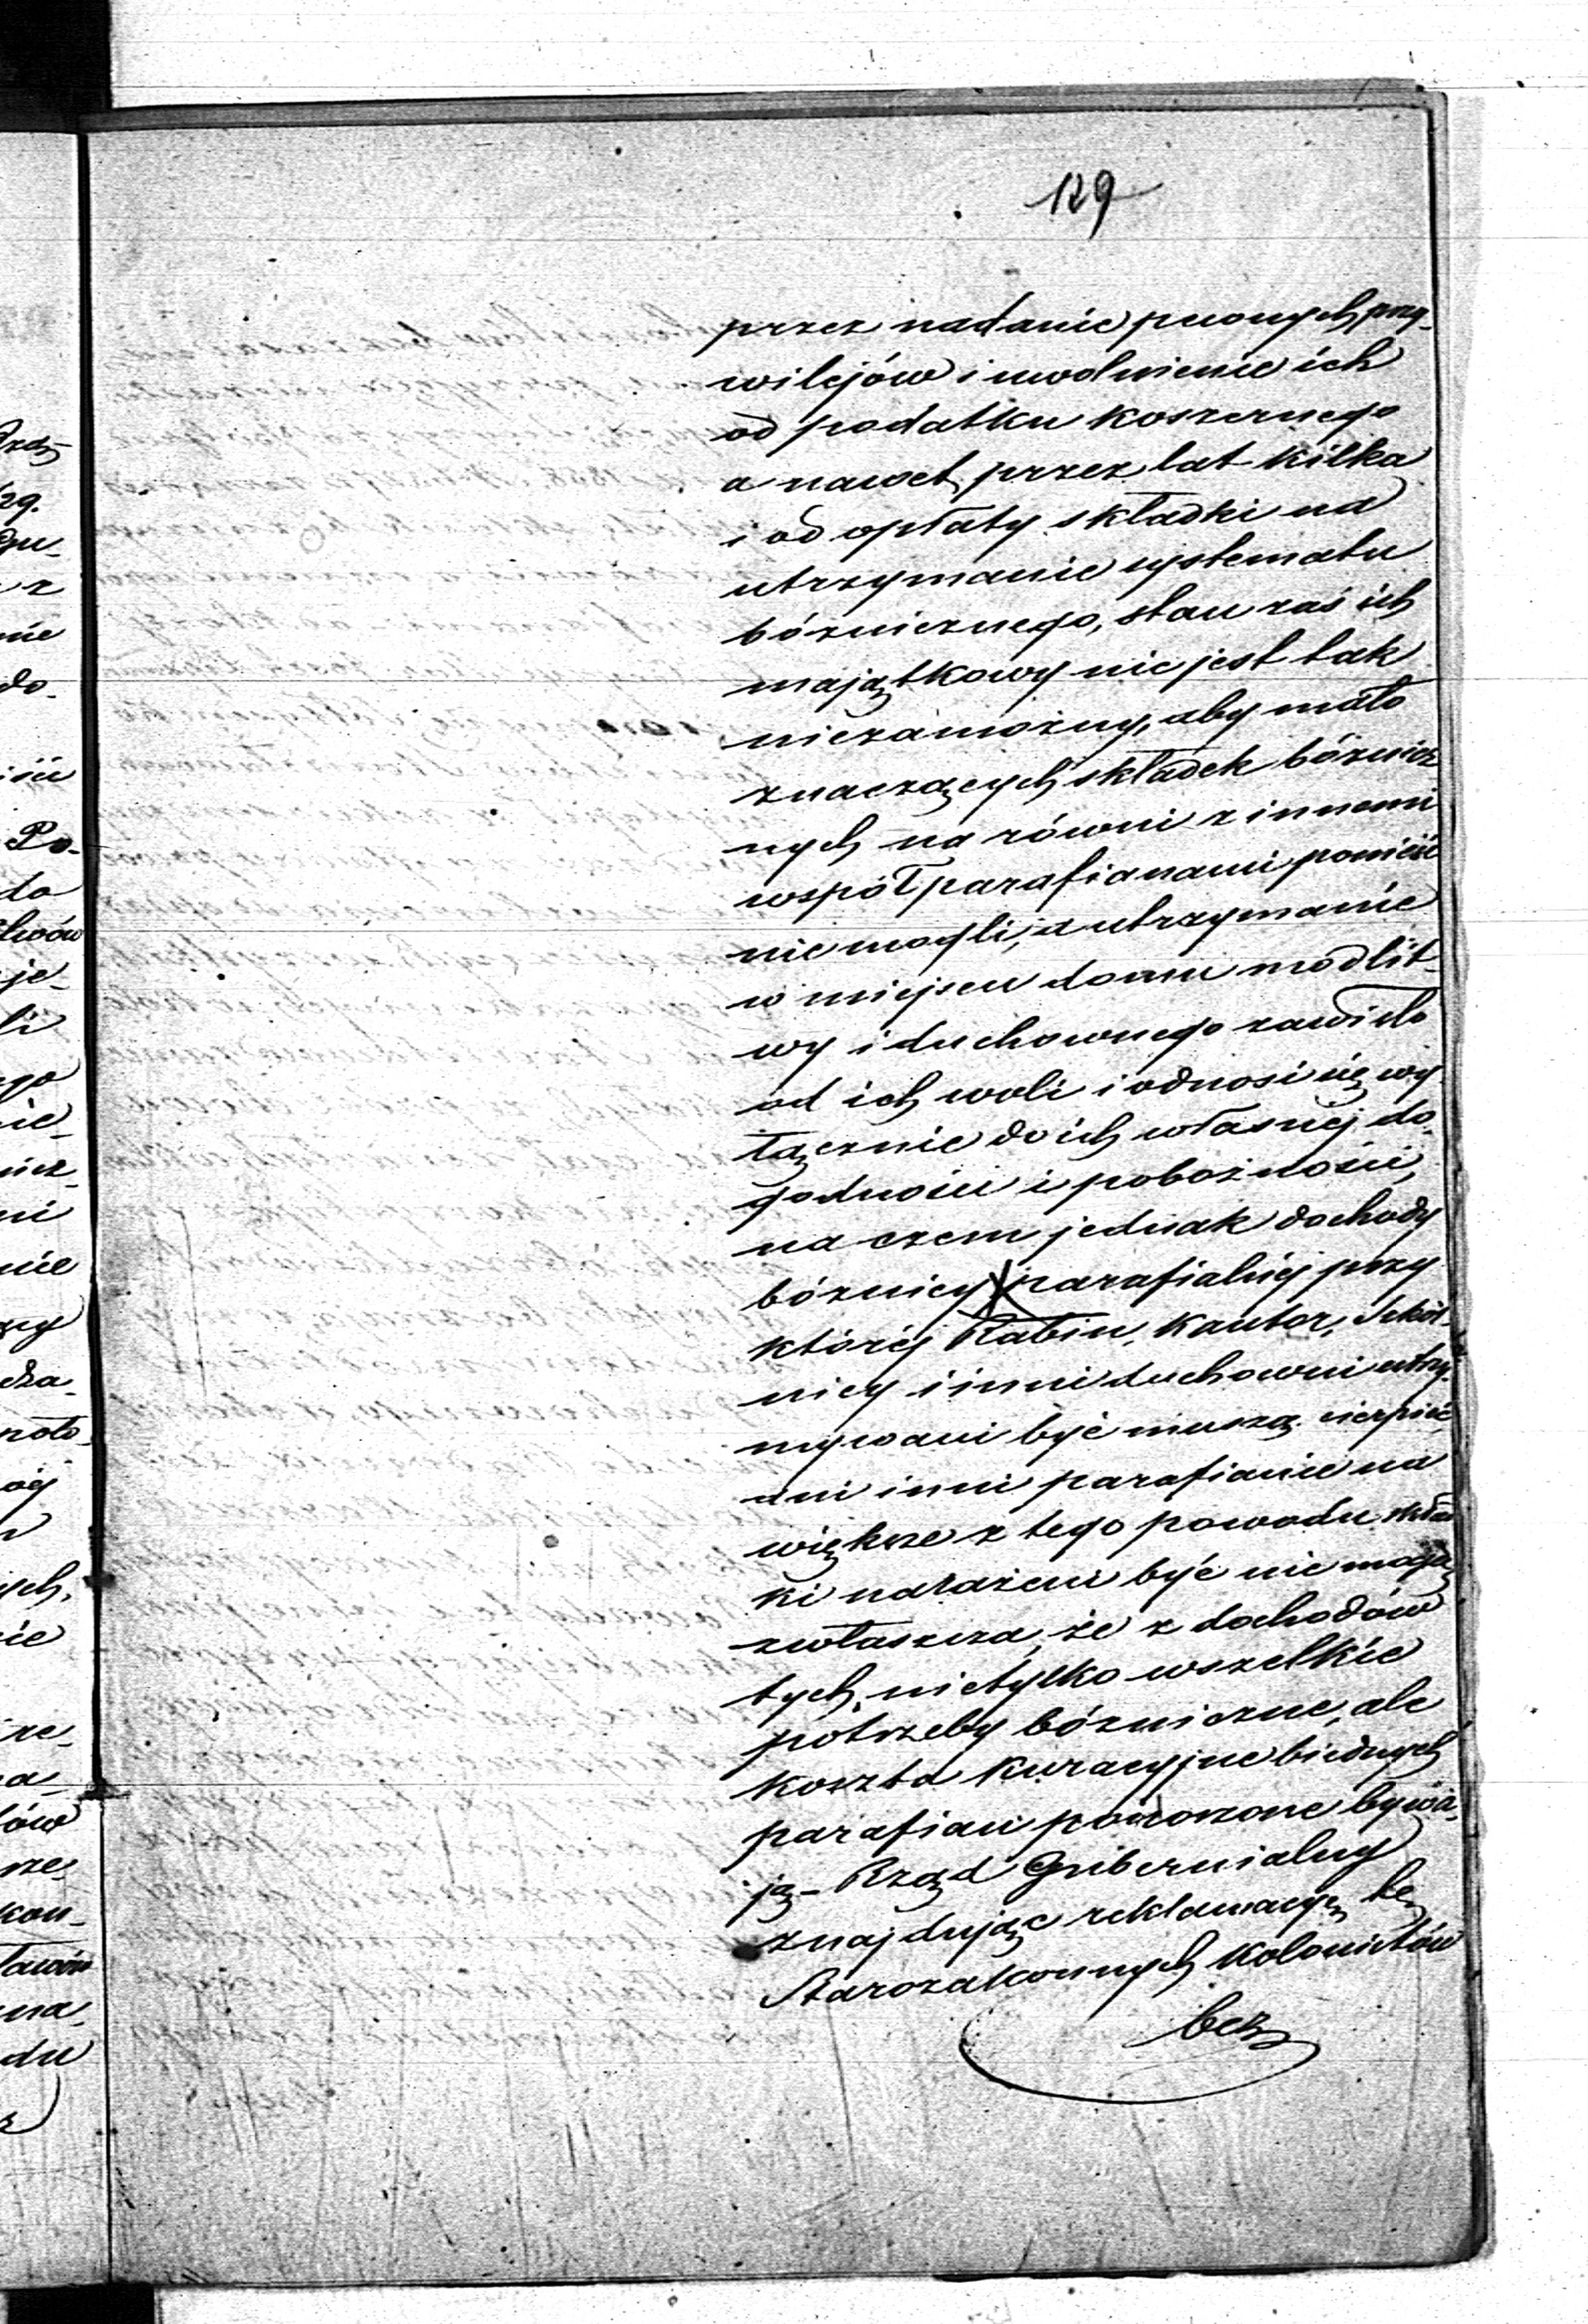 129
przez nadanie pewnych przy-
wilejów i uwolnienie ich
od podatku koszernego
a nawet przez lat kilka
i od opłaty składki na
utrzymanie systematu
bóżnicznego, stan zaś ich
majątkowy nie jest tak
niezamożny, aby mało
znaczących składek bóżnicz
nych na równi z innemi
współparafianami ponieść
nie mogli, a utrzymanie
w miejscu domu modlit-
wy i duchownego zawisło
od ich woli i odnosi się wy
łącznie do ich własnéj do-
godności i pobożności,
na czem jednak dochody
bóżnicy parafialnéj przy
któréj Rabin, Kantor, Szkól-
nicy i inni duchowni utrzy-
mywani być muszą cierpieć
ani inni parafianie na
większe z tego powodu skład
ki narażeni być nie mogą
zwłaszcza, że z dochodów
tych, nietylko wszelkie
potrzeby bóżniczne, ale
koszta kuracyjne biednych
parafian ponoszone bywa-
ją - Rząd Gubernialny
znajdując reklamacyę tę
Starozakonnych Kolonistów
bez